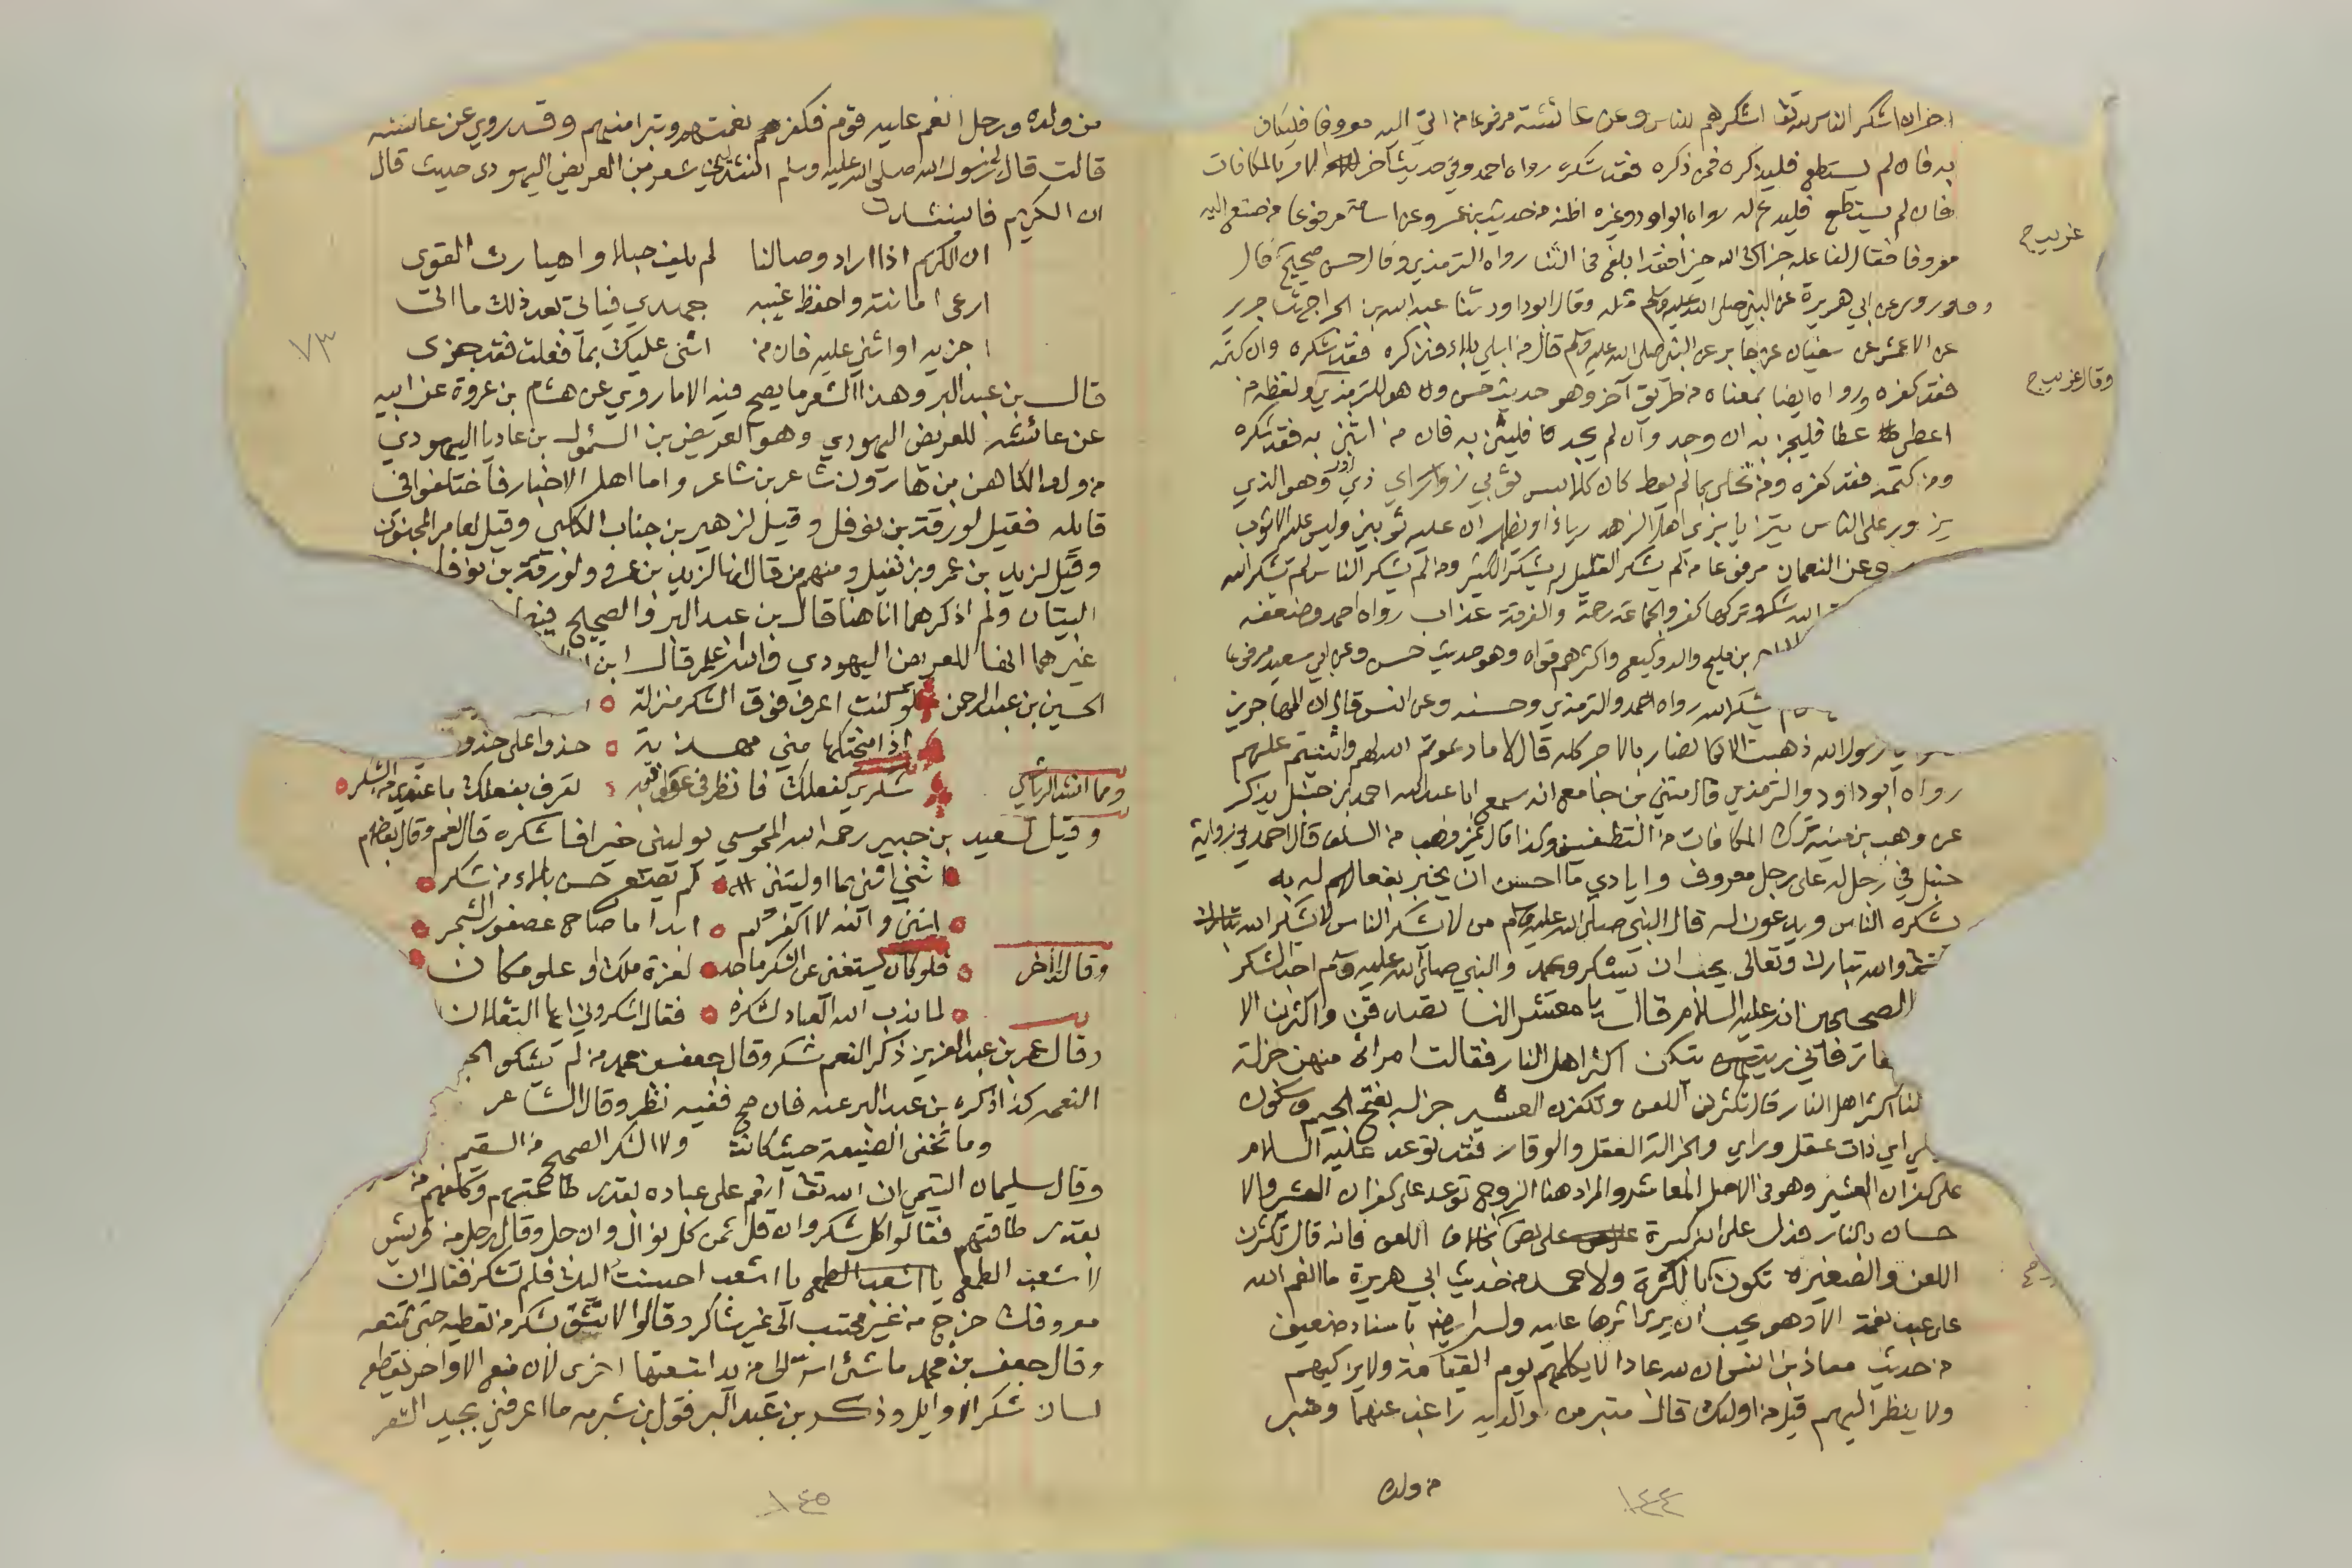 اخر ان اشكر الناس لله تعا اشكرهم للناس وعن عائشة مرفوعا من اتى اليه معروفا فليكاف
به فان لم يستطع فليذكره فمن ذكره فقد شكره رواه احمد وفي حديث آخر الامر بالمكافات
فان لم يستطع فليدع له رواه ابو داود وغيره اظنه من حديث بن عمر وعن اسامة مرفوعا من صنع اليه
غريب ح
معروفا فقال لفاعله جزاك الله خيرا فقد ابلغ في الثنا رواه الترمذي وقال حسن صحيح قال
وقد روى عن ابي هريرة عن النبي صلى الله عليه وسلم مثله وقال ابو داود ثنا عبد الله بن الجراح ثنا جرير
عن الاعمش عن سفيان عن جابر عن النبي صلى الله عليه وسلم قال من ابلي بلاء فذكره فقد شكره وان كتمه
وقال غريب ح
فقد كفره ورواه ايضا بمعناه من طريق آخر وهو حديث حسن وهو للترمذي ولفظه من
اعطي عطا فليجز به ان وجد وان لم يجد فليثن به فان من اثنى به فقد شكره
ومن كتمه فقد كفره ومن تحلى بما لم يعط كان كلابس ثوبي زور اي ذي زور وهو الذي
يزور على الناس يتزيا بزي اهل الزهد رياء او يظهر ان عليه ثوبين وليس عليه الا ثوب
وعن النعمان مرفوعا من لم يشكر القليل لم يشكر الكثير ومن لم يشكر الناس لم يشكر الله
الله شكر وتركها كفر والجماعة رحمة والفرقة عذاب رواه احمد وضعفه
بن مليح والد وكيع واكثرهم قواه وهو حديث حسن وعن ابي سعيد مرفوعا
يشكر الله رواه احمد والترمذي وحسنه وعن انس قال ان المهاجرين
يا رسول الله ذهبت الانصار بالاجر كله قال لا ما دعوتم الله لهم واثنيتم عليهم
رواه ابو داود والترمذي قال مثنى بن جامع انه سمع ابا عبد الله احمد بن حنبل يذكر
عن وهب بن منبه ترك المكافات من التطفيف وكذا قال غير وهب من السلف قال احمد في رواية
حنبل في رجل له على رجل معروف وايادي ما احسن ان يخبر بفعاله به
نشكره الناس ويدعون له قال النبي صلى الله عليه وسلم من لا يشكر الناس لا يشكر الله
والله تبارك وتعالى يحب ان يشكر ويحمد والنبي صلى الله عليه وسلم احب الشكر
الصحيحين انه عليه السلام قال يا معشر النسا تصدقن واكثرن الا
فاني رايتكن اكثر اهل النار فقالت امراة منهن جزلة
لنا اكثر اهل النار قال تكثرن اللعن وتكفرن العشير جزلة بفتح الجيم وسكون
اي ذات عقل وراي والجزالة العقل والوقار فقد توعد عليه السلام
على كفران العشير وهو في الاصل المعاشر والمراد هنا الزوج توعد على كفران العشير والا
حسان بالنار فدل على انه كبيرة على نص بخلاف اللعن فانه قال تكثرن
اللعن والصغيرة تكون بالكثرة ولاحمد من حديث ابي هريرة ما انعم الله
على عبد نعمة الا وهو يحب ان يرى اثرها عليه وله ايضا باسناد ضعيف
من حديث معاذ بن انس ان لله عبادا لا يكلمهم يوم القيامة ولا يزكيهم
ولا ينظر اليهم قيل من اولئك قال متبر من والديه راغب عنهما ومتبر
من ولده
١٤٤
من ولده ورجل انعم عليه قوم فكفر نعمتهم وتبرا منهم وقد روي عن عائشه
قالت قال لي رسول الله صلى الله عليه وسلم انشديني شعر بن العريض اليهودي حيث قال
ان الكريم فانشدت
ان الكريم اذا اراد وصالنا لم يلف حبلا واهيا رث القوى
ارعى امانته واحفظ غيبه جهدي فياتي بعد ذلك ما اتى
اجزيه او اثني عليه فان من اثنى عليك بما فعلت فقد جزى
٧٣
قال بن عبد البر وهذا الشعر ما يصح فيه الا ما روي عن هشام بن عروة عن ابيه
عن عائشه للعريض اليهودي وهو العريض بن السمؤل بن عاديا اليهودي
من ولد الكاهن بن هارون شاعر بن شاعر واما اهل الاخبار فاختلفوا في
قائله فقيل لورقة بن نوفل وقيل لزهير بن جناب الكلبي وقيل لعامر المجنون
وقيل لزيد بن عمرو بن نفيل ومنهم من قال انها لزيد بن عمرو ولورقة بن نوفل
البيتان ولم اذكرهما انا هنا قال بن عبد البر والصحيح فيهما
غيرهما انها للعريض اليهودي والله اعلم قال ابن
الحسين بن عبد الرحمن لو كنت اعرف فوق الشكر منزلة
اذا منحتكها مني مهذبة حذوا على حذو
ومما انشد الرياشي شكري كفعلك فانظر في عواقبه تعرف بفعلك ما عندي من الشكر
وقيل لسعيد بن جبير رحمه الله المجوسي يوليني خيرا فاشكره قال نعم وقال بعضهم
انني اثني بما اوليتني لم يضع حسن بلاء من شكر
انني والله لا اكفركم ابدا ما صاح عصفور الشجر
وقال آخر فلو كان يستغني عن الشكر ماجد لعزة ملك او علو مكان
لما ندب الله العباد لشكره فقال اشكروني ايها الثقلان
وقال عمر بن عبد العزيز ذكر النعم شكر وقال جعفر بن محمد من لم يشكر الج
النعمة كذا ذكره بن عبد البر عنه فان صح ففيه نظر وقال الشاعر
وما تخفى الصنيعة حيث كانت ولا الشكر الصحيح من السقيم
وقال سليمان التيمي ان الله تعا انعم على عباده بقدر طاعتهم وكلفهم من
بقدر طاقتهم فقالوا كل شكر وان قل ثمن كل نوال وان جل وقال رجل من قريش
لاشعب الطمع يا اشعب الطمع يا اشعب احسنت اليك فلم تشكر فقال ان
معروفك خرج من غير محتسب الى غير شاكر وقالوا لا تثق بشكر من تعطيه حتى تمنعه
وقال جعفر بن محمد ما شئ اسر الي من يد اتبعتها اخرى لان منع الاواخر يقطع
لسان شكر الاوايل وذكر بن عبد البر قول بن شبرمه ما اعرفني بجيد الشعر
١٤٥